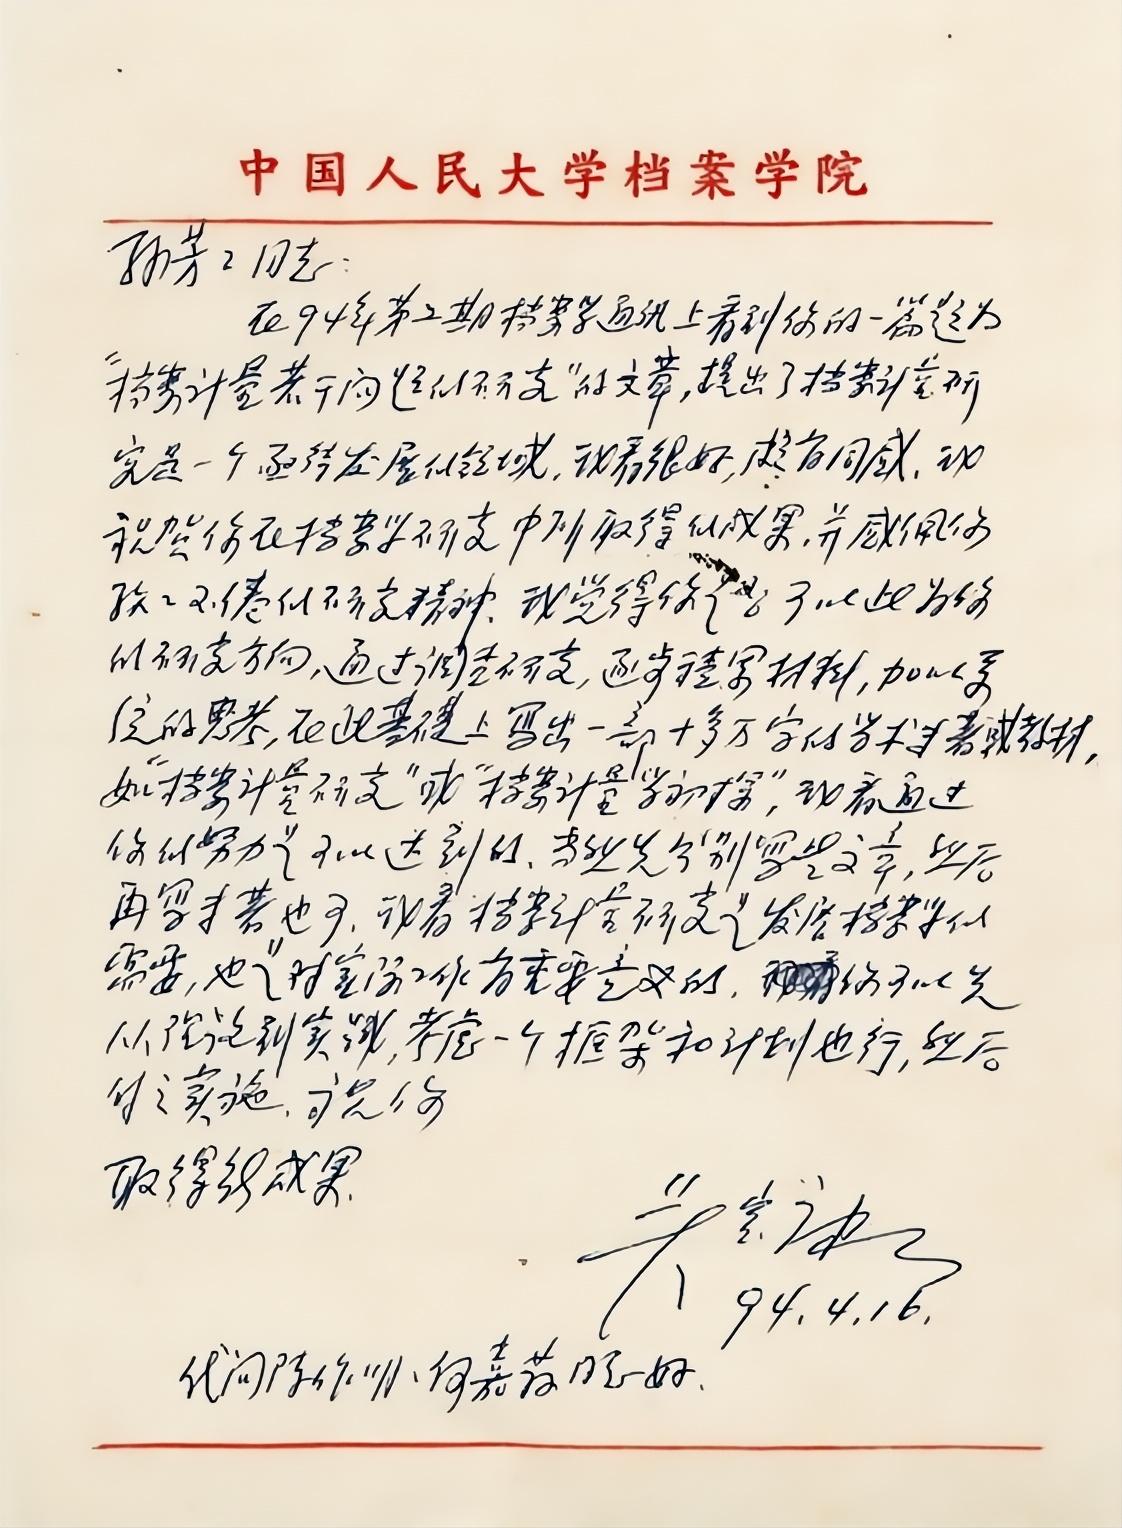 中国人民大学档案学院
孙芳芳同志：
在94年第二期档案学通讯上看到你的一篇题为
"档案计量若干问题的研究"的文章，提出了档案计量研
究是一个亟待发展的领域，我看很好，颇有同感，我
祝贺你在档案学研究中所取得的成果，并感佩你
孜孜不倦的研究精神。我觉得你是否可以此为你
的研究方向，通过调查研究，逐步积累材料，加以系
统的思考，在此基础上写出一部十多万字的学术专著或教材，
如"档案计量研究"或"档案计量学初探"，我看通过
你的努力是可以达到的。当然先分别写些文章，然后
再写专著也可。我看档案计量研究是发展档案学的
需要，也是对实际工作有重要意义的。你可以先
从理论到实践，考虑一个框架和计划也行，然后
付之实施。祝你
取得新成果。
吴宝康
94.4.16.
代问陈作明、何嘉荪同志好。